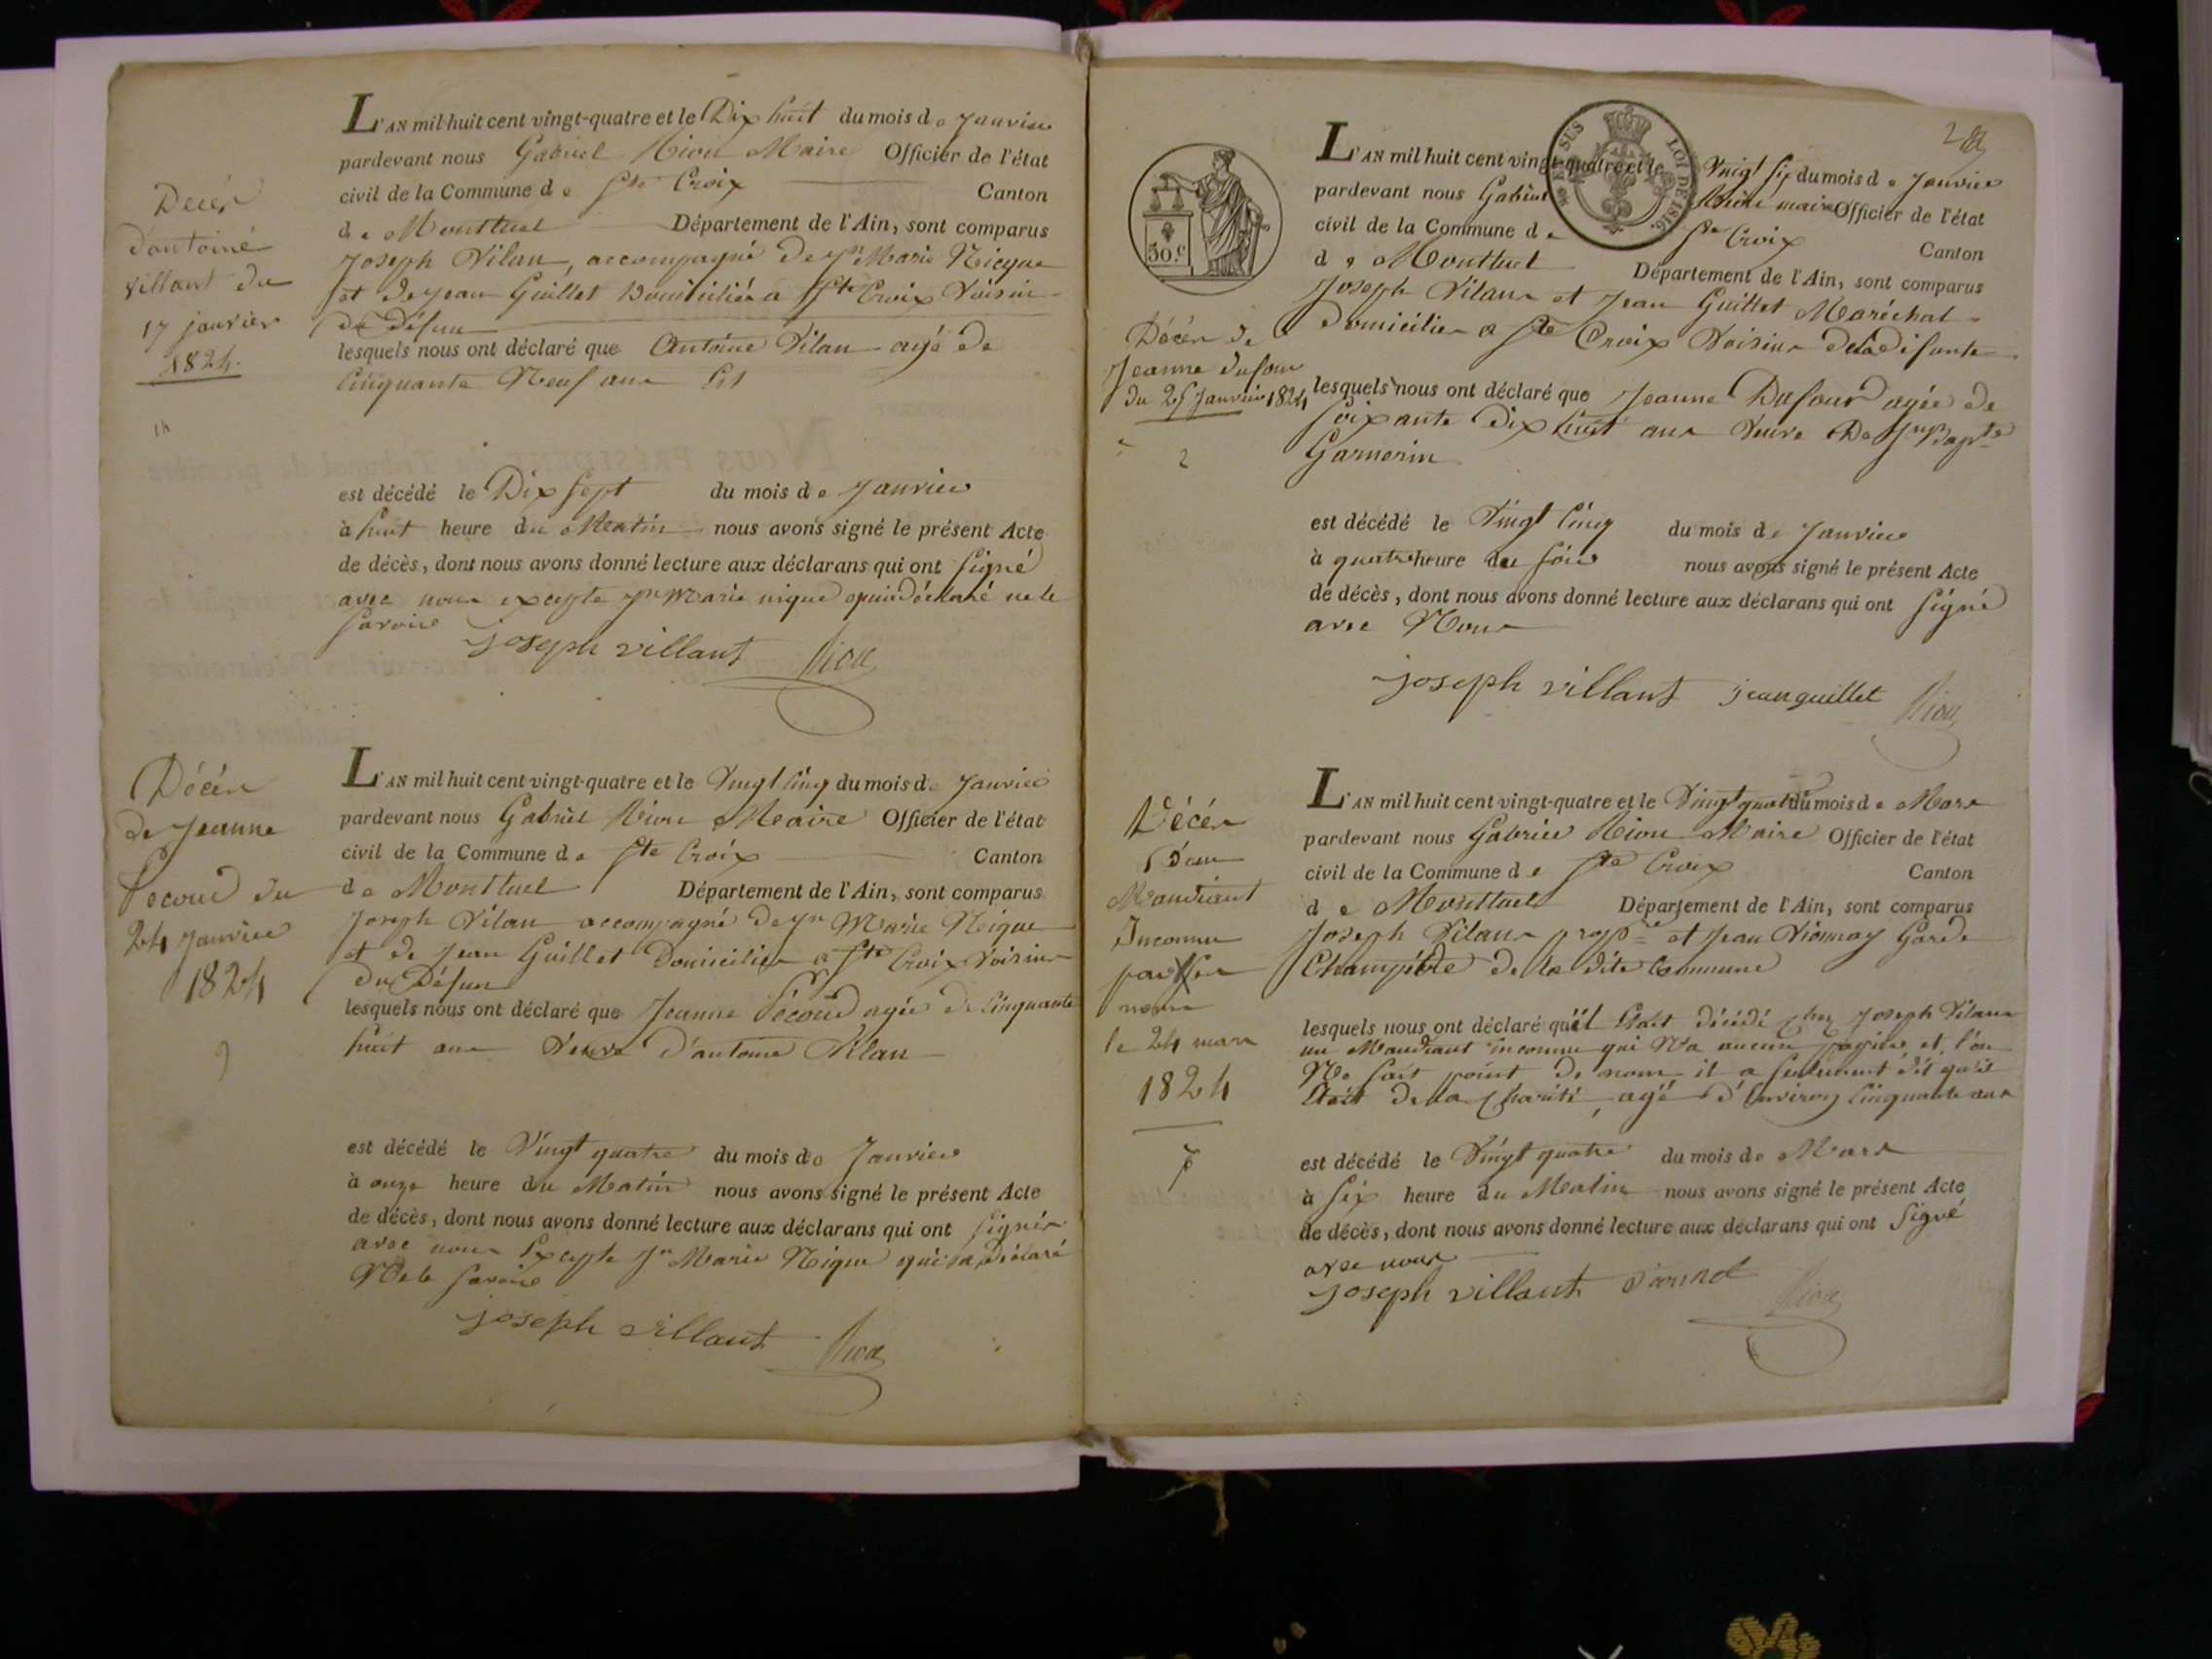 Décès
d'antoine
villant du
17 janvier
1824.
L'AN mil-huit cent vingt-quatre et le Dix huit du mois de Janvier
pardevant nous Gabriel Maire Officier de l'état
civil de la Commune de Ste Croix Canton
de Montluel Département de l'Ain, sont comparus
Joseph Vilan, accompagné de Jn Marie Nicque
et de Jean Guillet Domiciliés a Ste Croix Voisin
du Défun
lesquels nous ont déclaré que Antoine Vilan agé de
Cinquante Neuf ans
est décédé le Dix Sept du mois de Janvier
à huit heure du Matin nous avons signé le présent Acte
de décès, dont nous avons donné lecture aux déclarans qui ont Signé
avec nous excepte jn Marie nique qui a déclaré ne le
savoire
joseph villant
Décès
de Jeanne
du
24 Janvier
1824
L'AN mil huit cent vingt-quatre et le Vingt Cinq du mois de Janvier
pardevant nous Gabriel Maire Officier de l'état
civil de la Commune de Ste Croix Canton
de Montluel Département de l'Ain, sont comparus
Joseph Vilan accompagné de jn Marie Nique
et de Jean Guillet Domicilier a Ste Croix Voisins
Du Défun
lesquels nous ont déclaré que Jeanne agée de Cinquante
huit ans Veuve d'antoine Vilan
est décédé le Vingt quatre du mois de Janvier
à onze heure du Matin nous avons signé le présent Acte
de décès, dont nous avons donné lecture aux déclarans qui ont Signés
avec nous Excepte Jn Marie Nique qui a déclaré
Ne le Savoire
joseph villant
2
50.c
EN SUS
LOI DE 1816.
Décès de
Jeanne dufour
du 25 Janvier 1824
2
L'AN mil huit cent vingt-quatre et le Vingt Six du mois de Janvier
pardevant nous Gabriel maire Officier de l'état
civil de la Commune de Ste Croix Canton
de Montluel Département de l'Ain, sont comparus
Joseph Vilans et Jean Guillet Maréchal
domicilier a Ste Croix Voisins de la défunte
lesquels nous ont déclaré que Jeanne Dufour agée de
Soixante Dix huit ans Veuve De Jn Bapte
Garnerin
est décédé le Vingt Cinq du mois de Janvier
à quatre heure du Soire nous avons signé le présent Acte
de décès, dont nous avons donné lecture aux déclarans qui ont Signé
avec Nous
joseph villant jean guillet
Décès
D'un
Mandiant
Inconnu
par son
nom
le 24 mars
1824
L'AN mil huit cent vingt-quatre et le Vingt quatre du mois de Mars
pardevant nous Gabriel Maire Officier de l'état
civil de la Commune de Ste Croix Canton
de Montluel Département de l'Ain, sont comparus
Joseph Vilans propre et Jean Garde
Champêtre de la dite Commune
lesquels nous ont déclaré qu'il Etait décédé chez Joseph Vilans
un Mandiant inconnu qui N'a aucun papier et l'on
Ne sait point de nom il a seulement dit qu'il
Etait de la Charité, agé d'Environ Cinquante ans
est décédé le Vingt quatre du mois de Mars
à Six heure du Matin nous avons signé le présent Acte
de décès, dont nous avons donné lecture aux déclarans qui ont Signé
avec nous
joseph villant